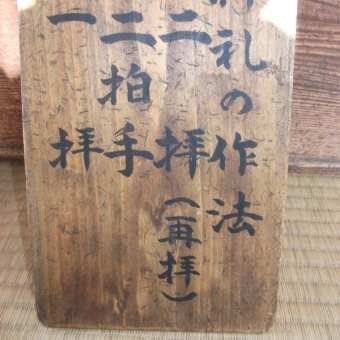 礼の作法
二拝(再拝)
二拍手
一拝